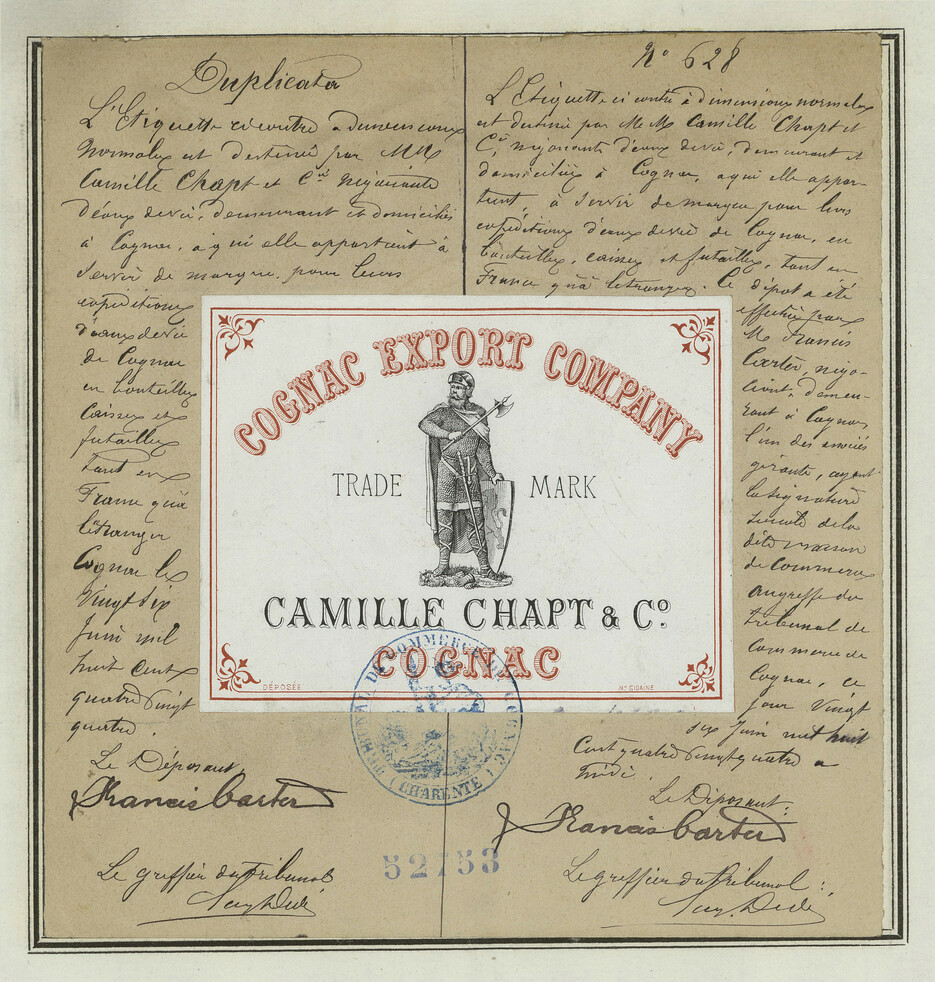 Duplicata
L'Etiquette ci contre a dimensions
normales est destinée par MM
Camille Chapt et Cie négociants
d'eaux de vie, demeurant et domiciliés
à Cognac, à qui elle appartient à
servir de marque pour leurs
expéditions
d'eaux de vie
de Cognac
en bouteilles
caisses et
futailles
tant en
France qu'à
l'étranger
Cognac le
Vingt six
Juin mil
huit cent
quatre vingt
quatre.
Le Déposant
Francis Carter
Le greffier du tribunal
N° 628
L'Etiquette ci contre à dimensions normales
est destinée par MM Camille Chapt et
Cie, négociants d'eaux de vie, demeurant et
domiciliés à Cognac, à qui elle appar-
tient, à servir de marque pour leurs
expéditions d'eaux de vie de Cognac, en
bouteilles, caisses et futailles, tant en
France qu'à l'étranger. Ce dépôt a été
effectué par
M. Francis
Carter, négo-
ciant, demeu-
rant à Cognac,
l'un des
gérants, ayant
la signature
sociale de la
dite maison
de Commerce
au greffe du
tribunal de
Commerce de
Cognac, ce
jour vingt
six Juin mil huit
Cent quatre vingt quatre à
midi.
Le Déposant:
Francis Carter
Le greffier du tribunal:
COGNAC EXPORT COMPANY
TRADE MARK
CAMILLE CHAPT & Co.
COGNAC
DÉPOSÉE
TRIBUNAL DE COMMERCE DE COGNAC
(CHARENTE)
52753